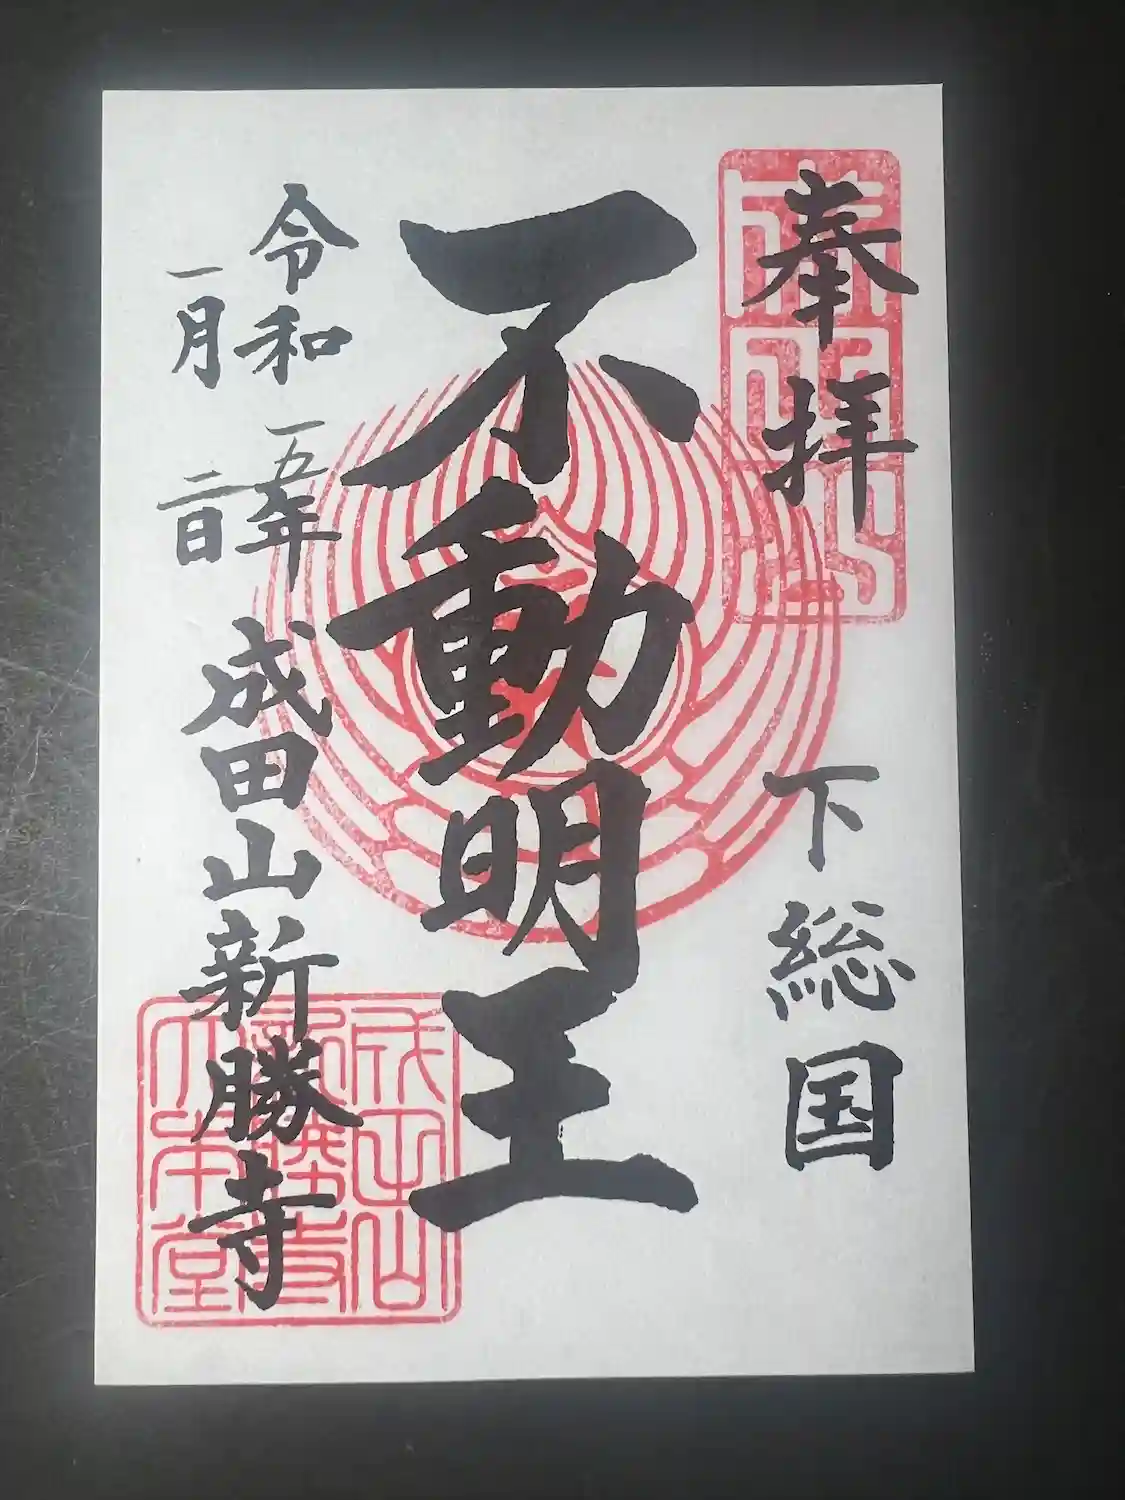 奉拝
下総国
不動明王
令和五年
一月二日
成田山新勝寺
成田山
成田山
新勝寺
大本堂